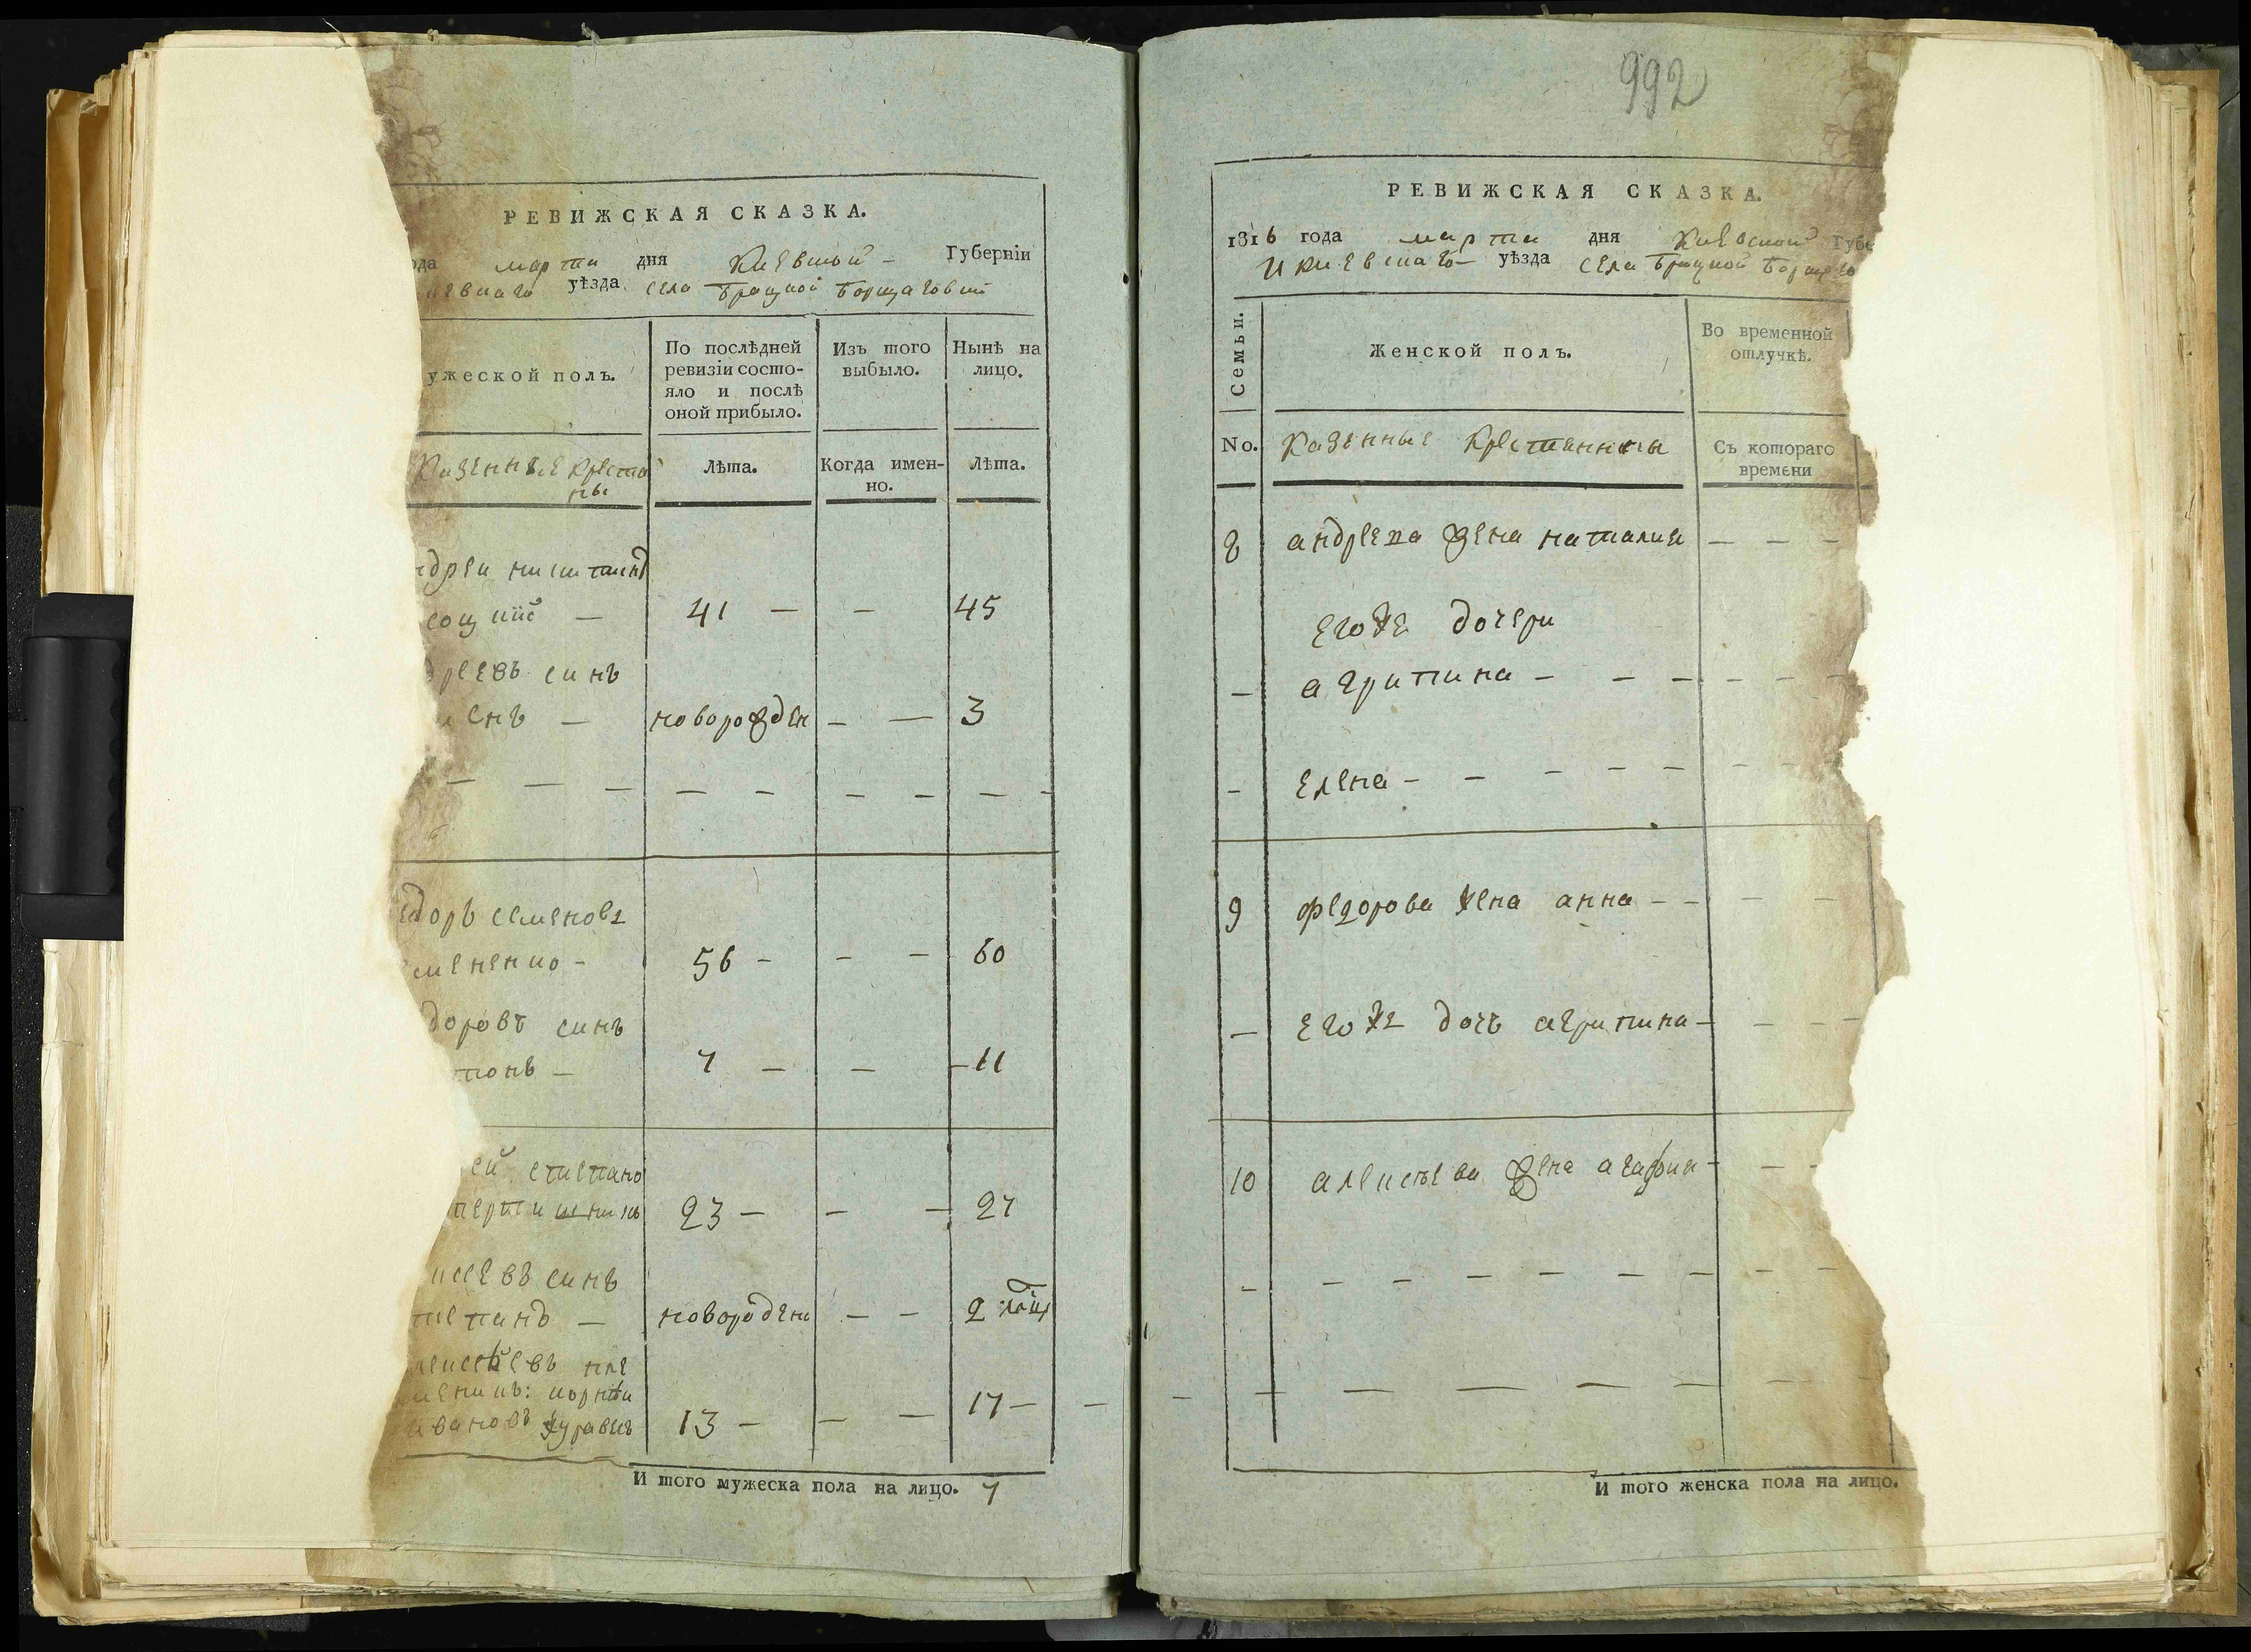 РЕВИЖСКАЯ СКАЗКА.
ода марта дня Киевской Губерніи
иевскаго уѣзда села Брацкой Борщаговки
ужеской полъ.
По послѣдней
ревизіи состо-
яло и послѣ
оной прибыло.
Изъ того
выбыло.
Нынѣ на
лицо.
Казенные кресття
ны
Лѣта.
Когда имен-
но.
Лѣта.
ндреи
41 — — 45
дреевъ синъ
енъ — новорожден — — 3
едоръ семеновъ
еменко - 56 - - - 60
доровъ синъ
тонъ — 7 — — - 11
ей степано
23 — — — 27
исеевъ синъ
тепанъ — новорожденъ — — 2
лексеевъ пле
меникъ: корнѣи
ивановъ журавель 13 — — — 17 —
И того мужеска пола на лицо. 7
992
РЕВИЖСКАЯ СКАЗКА.
1816 года марта дня Киевской Губе
И киевскаго уѣзда села Брацкой Борщаго
Семьи.
Женской полъ.
Во временной
отлучкѣ.
No.
Казенные крестянки
Съ котораго
времени
8 андреева жена наталия — — —
егоже дочери
— агрипина — — — — — —
- елена - - - - - - - -
9 федорова жена анна - - - -
— егоже дочъ агрипина — — — —
10 алексѣева жена агафия - — -
И того женска пола на лицо.